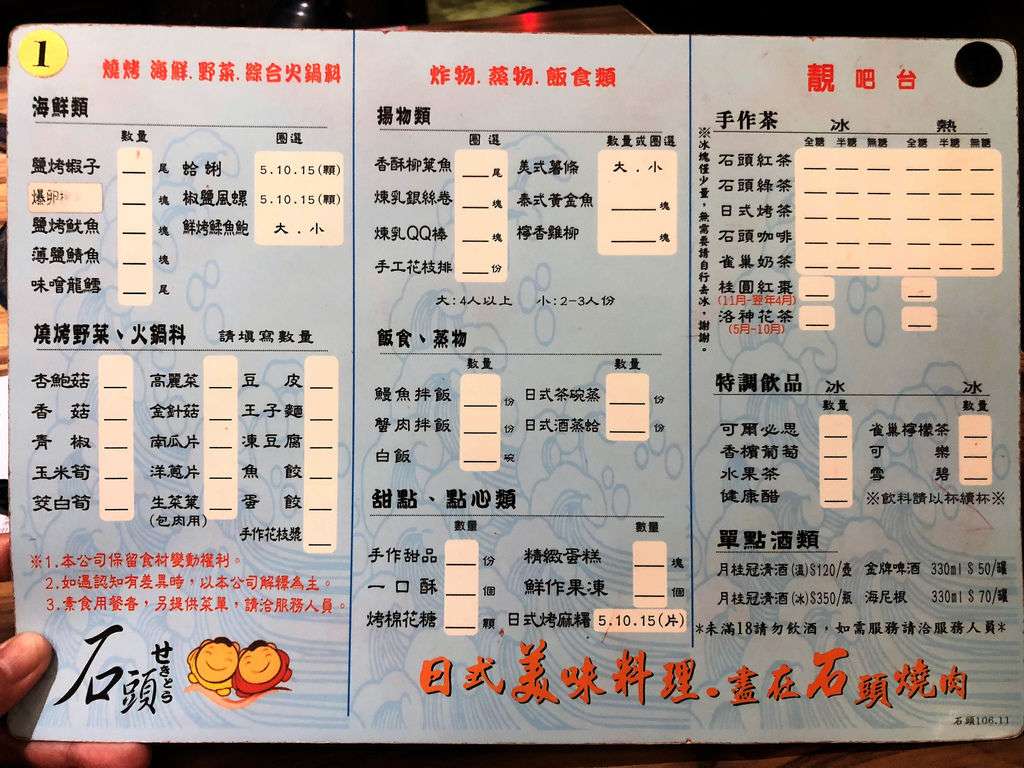 1
燒烤.海鮮.野菜.綜合火鍋料
海鮮類
數量 圈選
鹽烤蝦子 尾 蛤蜊 5.10.15(顆)
爆卵 塊 椒鹽風螺 5.10.15(顆)
鹽烤魷魚 塊 鮮烤鰇魚鮑 大.小
薄鹽鯖魚 塊
味噌龍鱈 尾
燒烤野菜、火鍋料 請填寫數量
杏鮑菇 高麗菜 豆皮
香菇 金針菇 王子麵
青椒 南瓜片 凍豆腐
玉米筍 洋蔥片 魚餃
筊白筍 生菜葉 蛋餃
(包肉用)
手作花枝漿
※1.本公司保留食材變動權利。
2.如遇認知有差異時,以本公司解釋為主。
3.素食用餐者,另提供菜單,請洽服務人員。
石頭
せきとう
炸物.蒸物.飯食類
揚物類
圈選 數量或圈選
香酥柳葉魚 尾 美式薯條 大.小
煉乳銀絲卷 塊 泰式黃金魚 塊
煉乳QQ棒 塊 檸香雞柳 塊
手工花枝排 份
大:4人以上 小:2-3人份
飯食、蒸物
數量 數量
鰻魚拌飯 份 日式茶碗蒸 份
蟹肉拌飯 份 日式酒蒸蛤 份
白飯 碗
甜點、點心類
數量 數量
手作甜品 份 精緻蛋糕 塊
一口酥 個 鮮作果凍 個
烤棉花糖 顆 日式烤麻糬 5.10.15(片)
日式美味料理.盡在石頭燒肉
靚吧台
手作茶 冰 熱
全糖 半糖 無糖 全糖 半糖 無糖
石頭紅茶
石頭綠茶
日式烤茶
石頭咖啡
雀巢奶茶
桂圓紅棗
(11月-翌年4月)
洛神花茶
(5月-10月)
※冰塊僅少量,無需要請自行去冰,謝謝。
特調飲品 冰 冰
數量 數量
可爾必思 雀巢檸檬茶
香檳葡萄 可樂
水果茶 雪碧
健康醋 ※飲料請以杯續杯※
單點酒類
月桂冠清酒(溫)$120/壺 金牌啤酒 330ml $50/罐
月桂冠清酒(冰)$350/瓶 海尼根 330ml $70/罐
*未滿18請勿飲酒,如需服務請洽服務人員*
石頭106.11